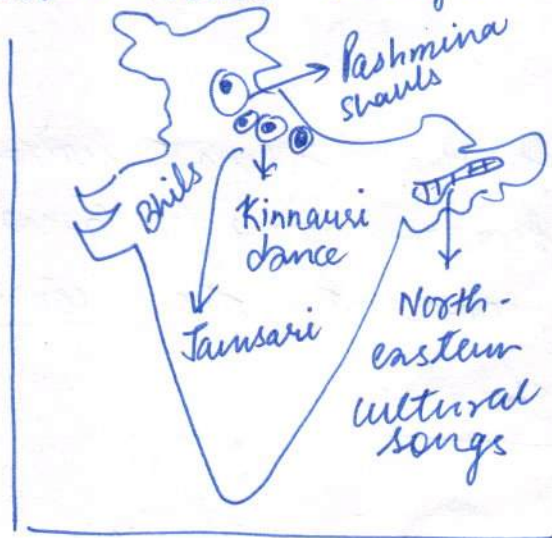 Pashmina
shawls
Bhils
Kinnauri
dance
Jaunsari
North-
eastern
cultural
songs